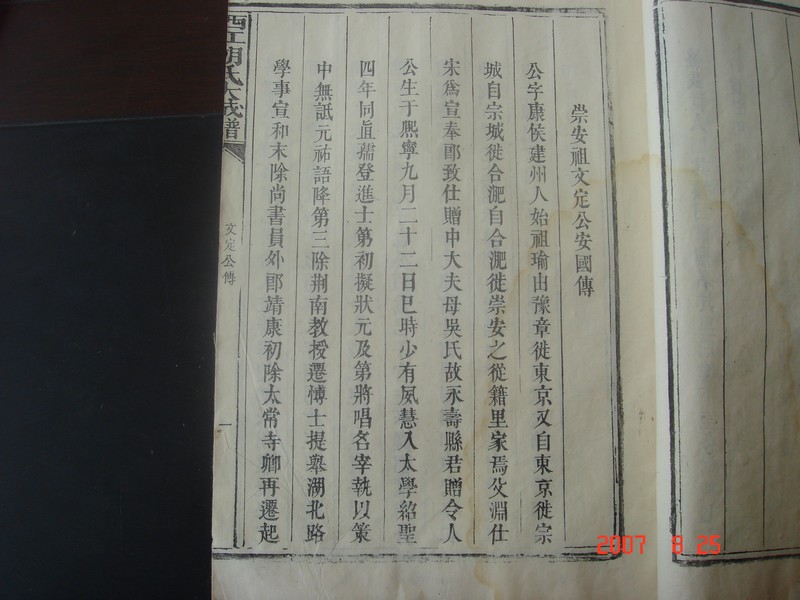 崇安祖文定公安國傳
公字康侯建州人始祖瑜由豫章徙東京又自東京徙宗
城自宗城徙合淝自合淝徙崇安之從籍里家焉父淵仕
宋爲宣奉郎致仕贈中大夫母吳氏故永壽縣君贈令人
公生于熙寧九月二十二日巳時少有夙慧入太學紹聖
四年同眞孺登進士第初擬狀元及第將唱名宰執以策
中無詆元祐語降第三除荆南教授遷博士提舉湖北路
學事宣和末除尚書員外郎靖康初除太常寺卿再遷起
西江胡氏大成譜
文定公傳
一
2007 8 25